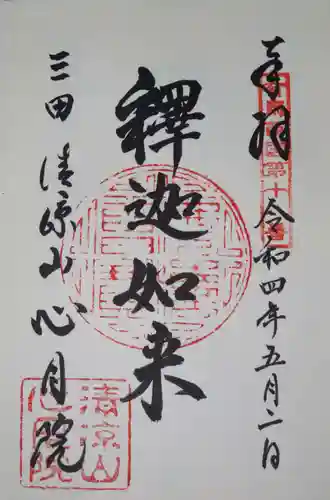 奉拝
令和四年五月二日
釋迦如来
三田 清凉山 心月院
清涼山
心月院